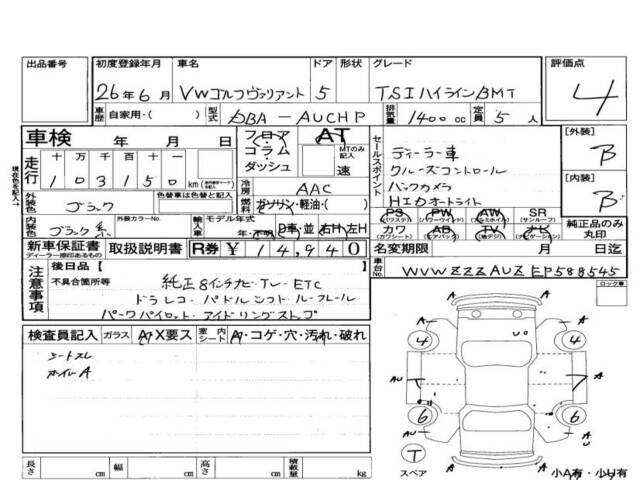 出品番号 初度登録年月 車名 ドア 形状 グレード 評価点
26年6月 VWゴルフヴァリアント 5 TSIハイラインBMT 4
車歴 自家用・( ) 型式 DBA-AUCHP 排気量 1400cc 定員 5人
車検 年 月 日 フロア AT セールスポイント ディーラー車 [外装] B
コラム MTのみ記入 クルーズコントロール
ダッシュ 速 バックカメラ
走行 十 万 千 百 十 一 HIDオートライト [内装] B
1 0 3 1 5 0 km 冷房 AAC
外装色 ブラック 色替車は色替と記入 燃料 ガソリン・軽油・( )
PS PW AW SR
(パワステ) (パワーウインド) (アルミホイル) (サンルーフ)
カワ AB TV ナビ 純正品のみ丸印
(カワシート) (エアバック) (地デジ) (ナビゲーション)
内装色 ブラック系 外装カラーNo. 輸入車 モデル年式 年・不明 D車・並 右H・左H
新車保証書 取扱説明書 R券 ¥14,940 名変期限 月 日迄
ディーラー捺印あるもの
車台No. WVWZZZAUZEP588545
注意事項 後日品[ ]
不具合箇所等 純正8インチナビ・TV・ETC
ドラレコ・パドルシフト・ルーフレール
パークパイロット・アイドリングストップ
ロック車
検査員記入 ガラス A・X要ス 室内シート A・コゲ・穴・汚れ・破れ
シートスレ
ホイルA
A A A
U
4 4
A A
AU T 7 A
6 6
A A U
T
スペア
A
小A有・小U有
長さ cm 幅 cm 高さ cm 積載量 kg
現在色を記入→